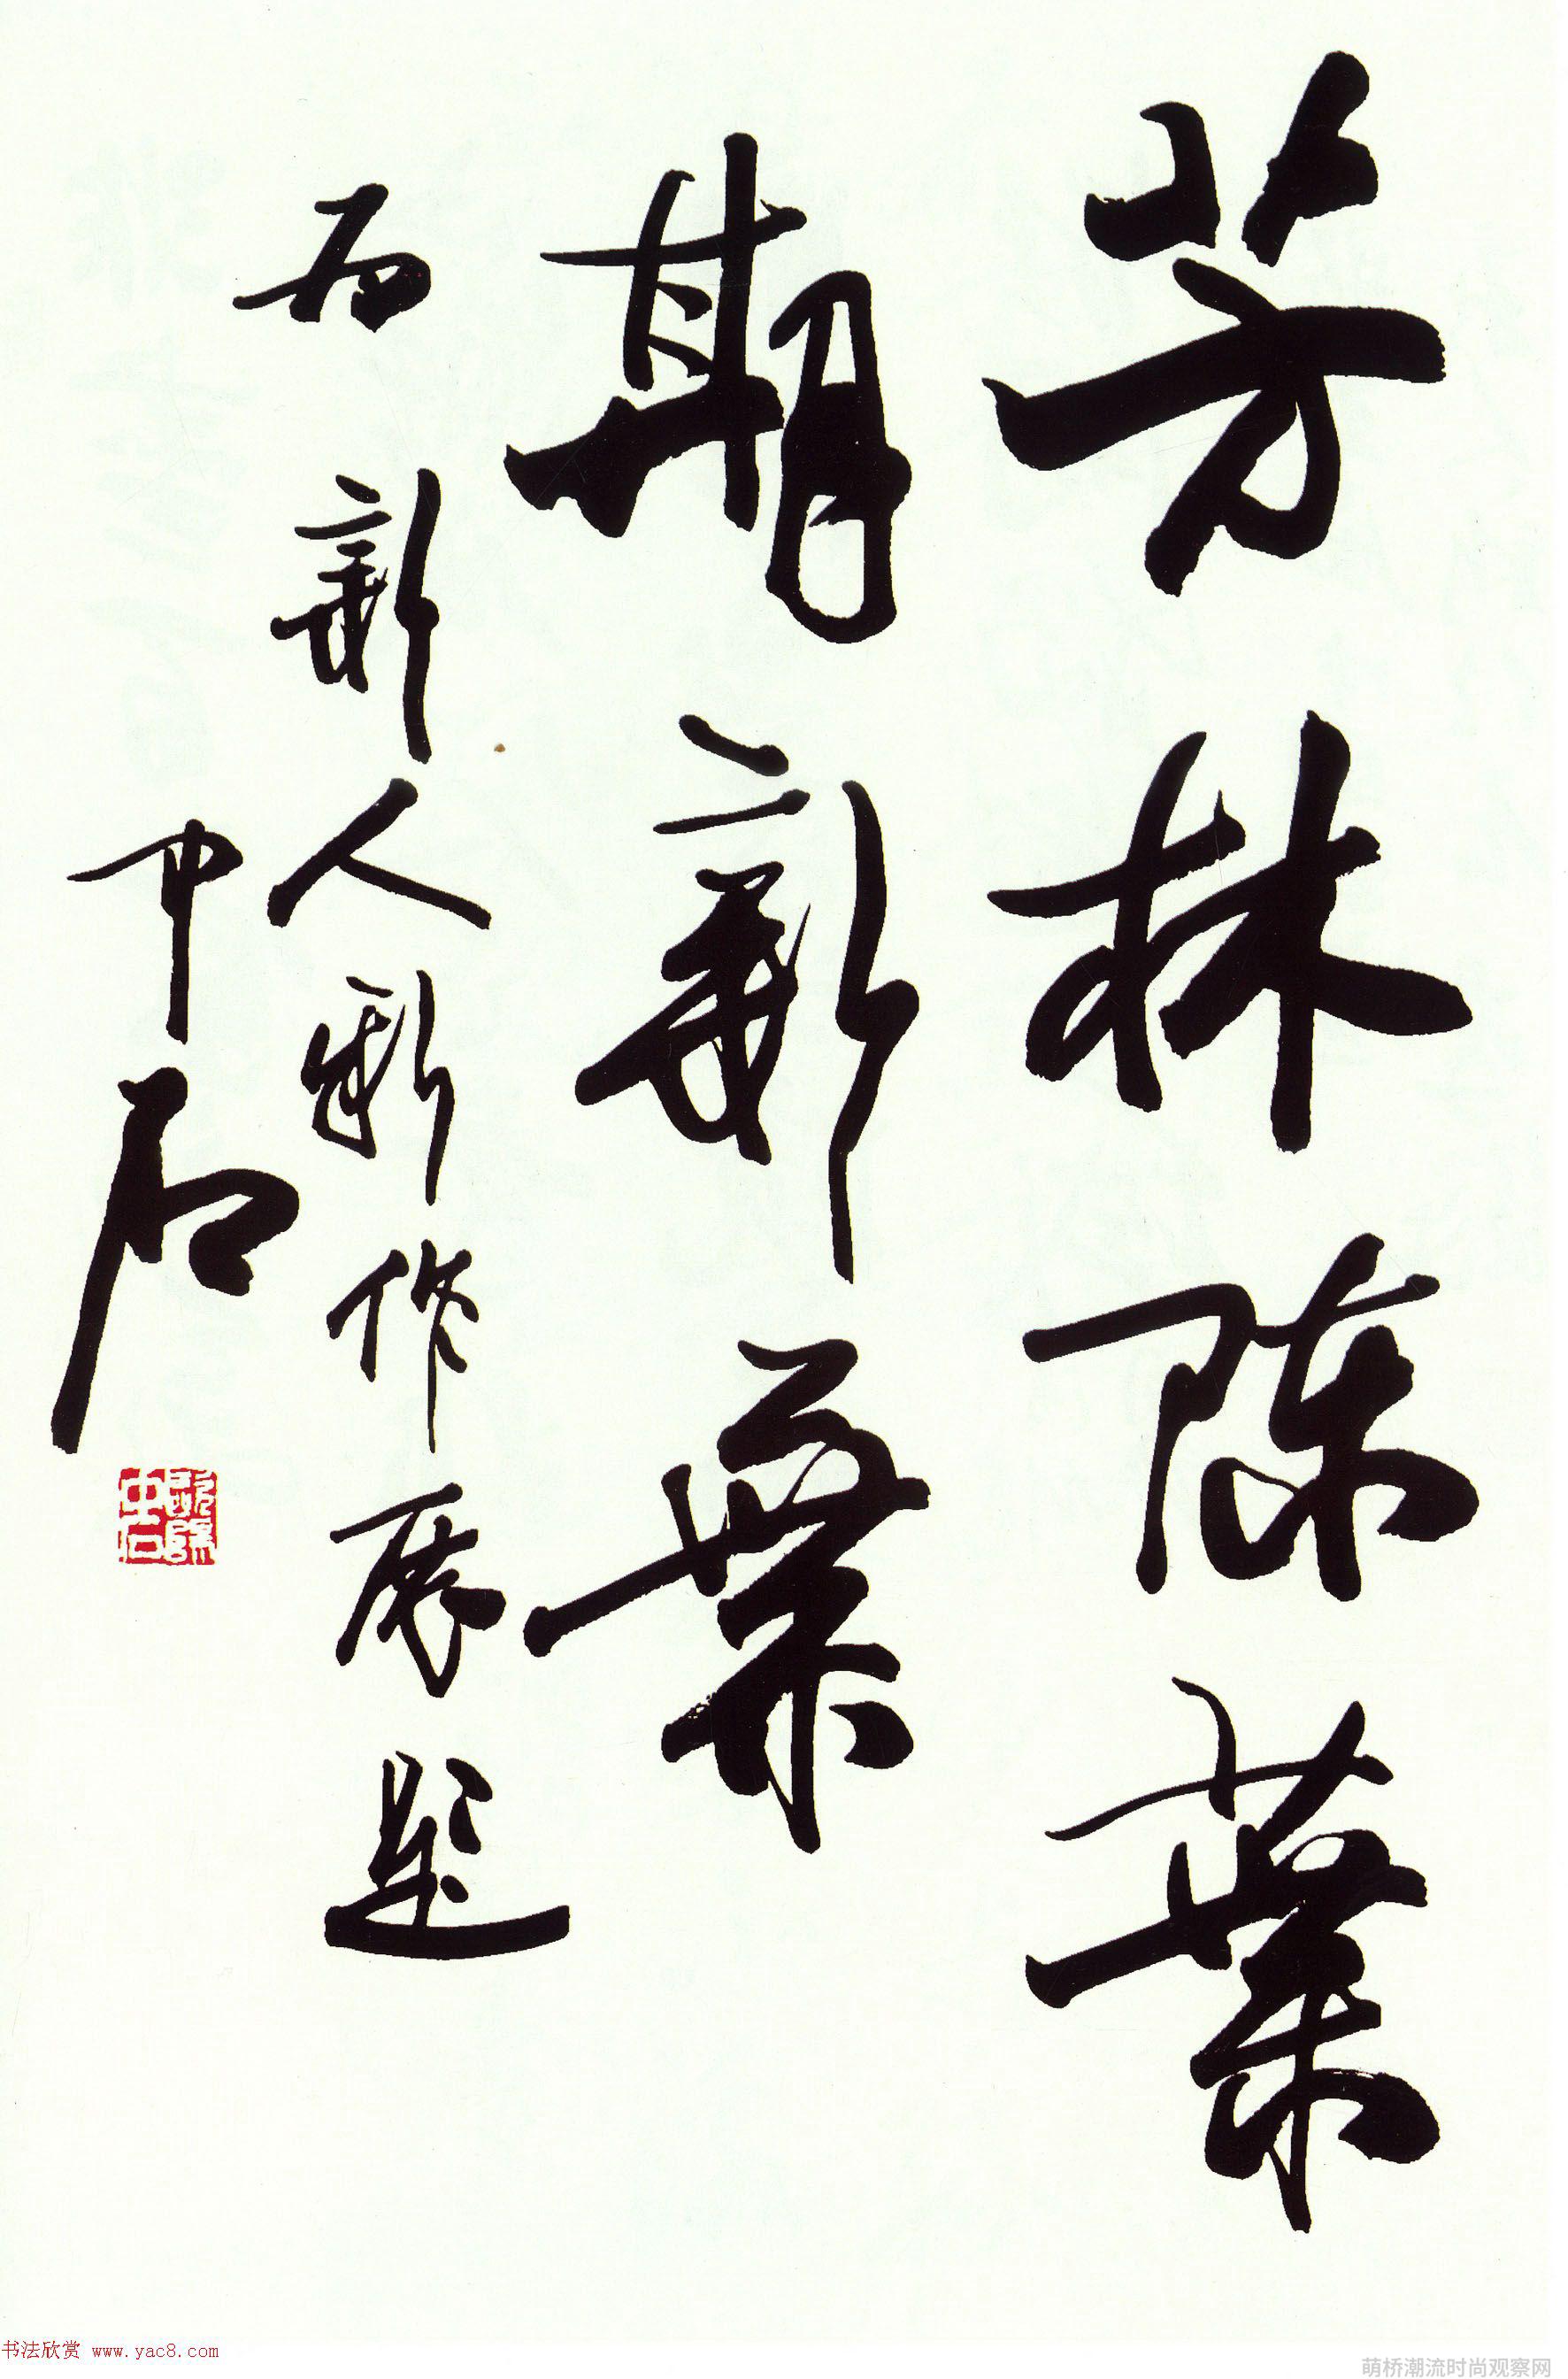 芳林陳葉
期新葉
为新人新作展題
中石
歐陽中石
书法欣赏 www.yac8.com
萌桥潮流时尚观察网